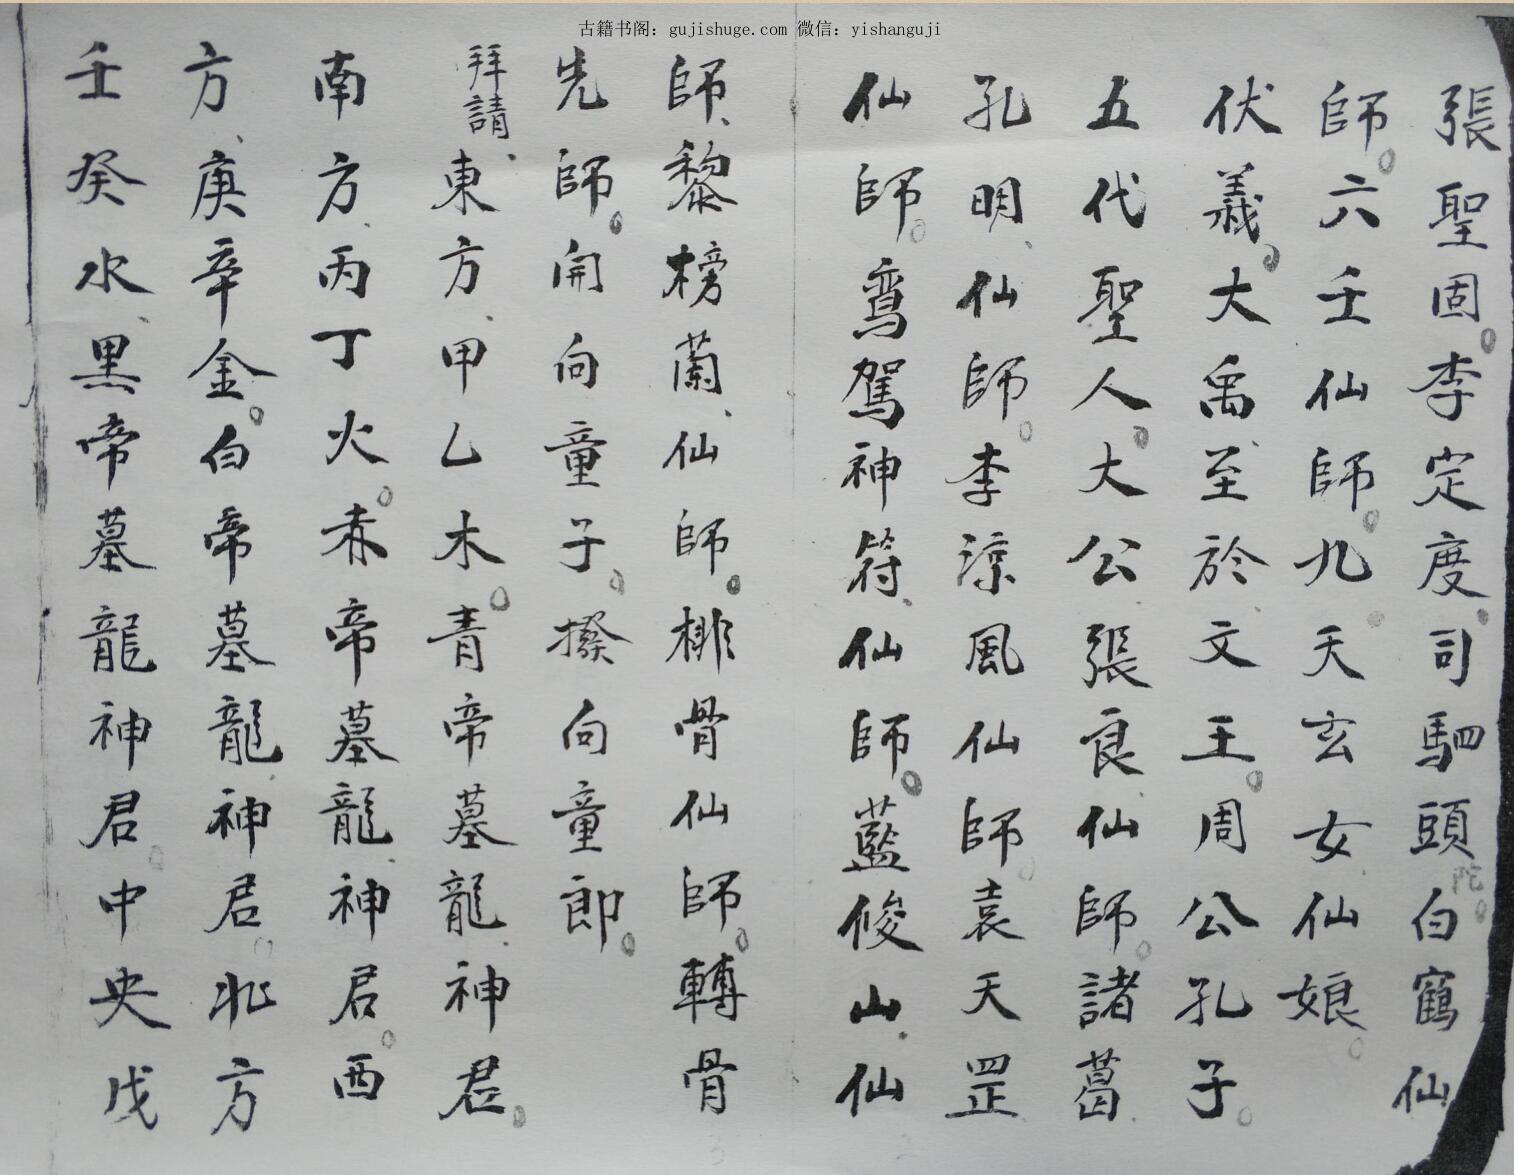 古籍书阁：gujishuge.com 微信：yishanguji
張聖固李定度司駟頭陀白鶴仙
師六壬仙師九天玄女仙娘
伏羲大禹至於文王周公孔子
五代聖人大公張良仙師諸葛
孔明仙師李淳風仙師袁天罡
仙師鸞駕神符仙師藍俊山仙
師黎榜蘭仙師梆骨仙師轉骨
先師開向童子撥向童郎
拜請東方甲乙木青帝墓龍神君
南方丙丁火赤帝墓龍神君西
方庚辛金白帝墓龍神君北方
壬癸水黑帝墓龍神君中央戊